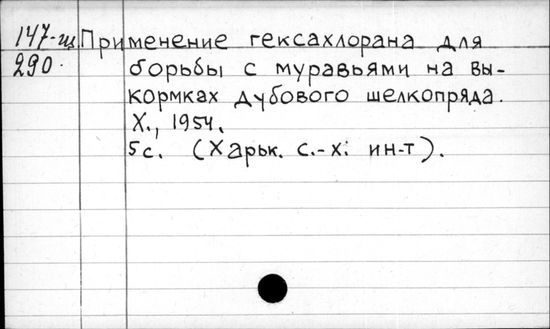 147-щ Применение гексахлорана для
290. борьбы с муравьями на вы-
кормках дубового шелкопряда.
Х., 1954.
5с. (Харьк. с.-х. ин-т).